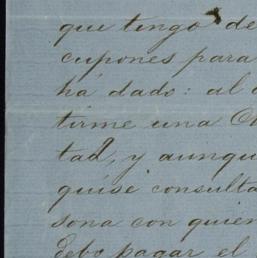 que tengo de
cupones para
há dado: al
tirme una
tad, y aunqu
quise consulta
sona con quien
Debo pagar el